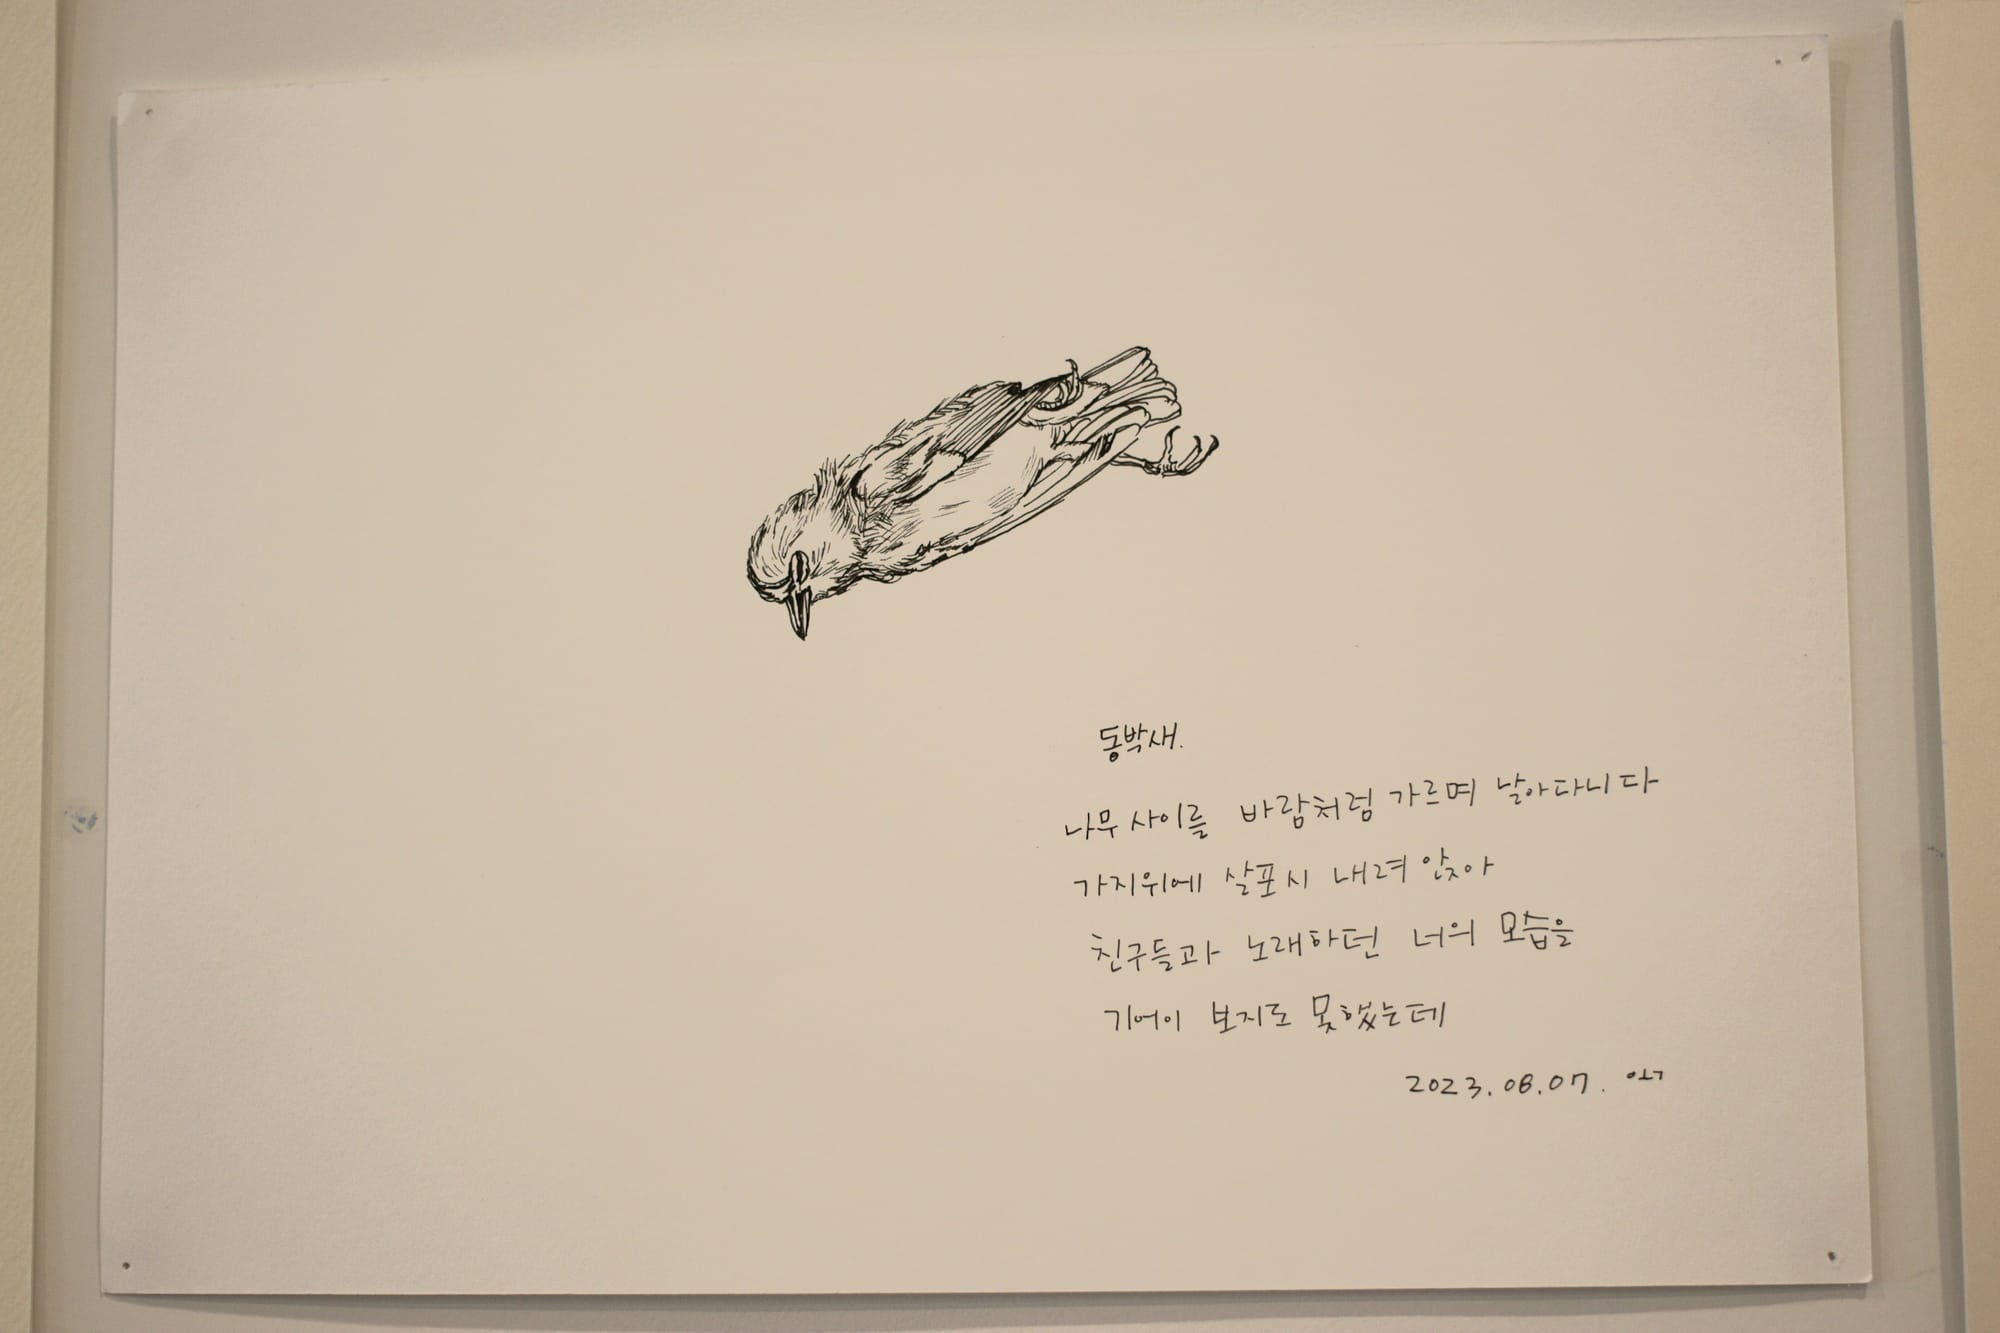 동박새.
나무 사이를 바람처럼 가르며 날아다니다
가지위에 살포시 내려 앉아
친구들과 노래하던 너의 모습을
기어이 보지도 못했는데
2023.08.07.